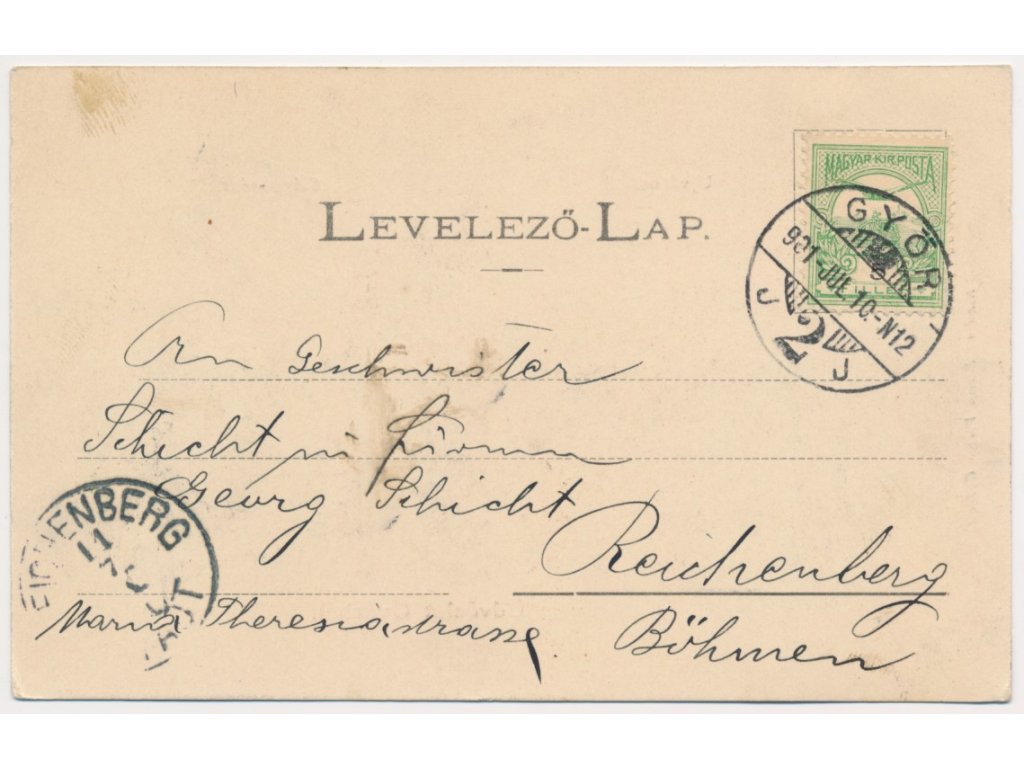 MAGYAR KIR. POSTA
LEVELEZŐ-LAP.
GYŐR
901-JUL.10.-N12
J 2 J
An Geschwister
Schicht
Georg Schicht
Reichenberg
Maria Theresiastrasse
Böhmen
EICHENBERG
11